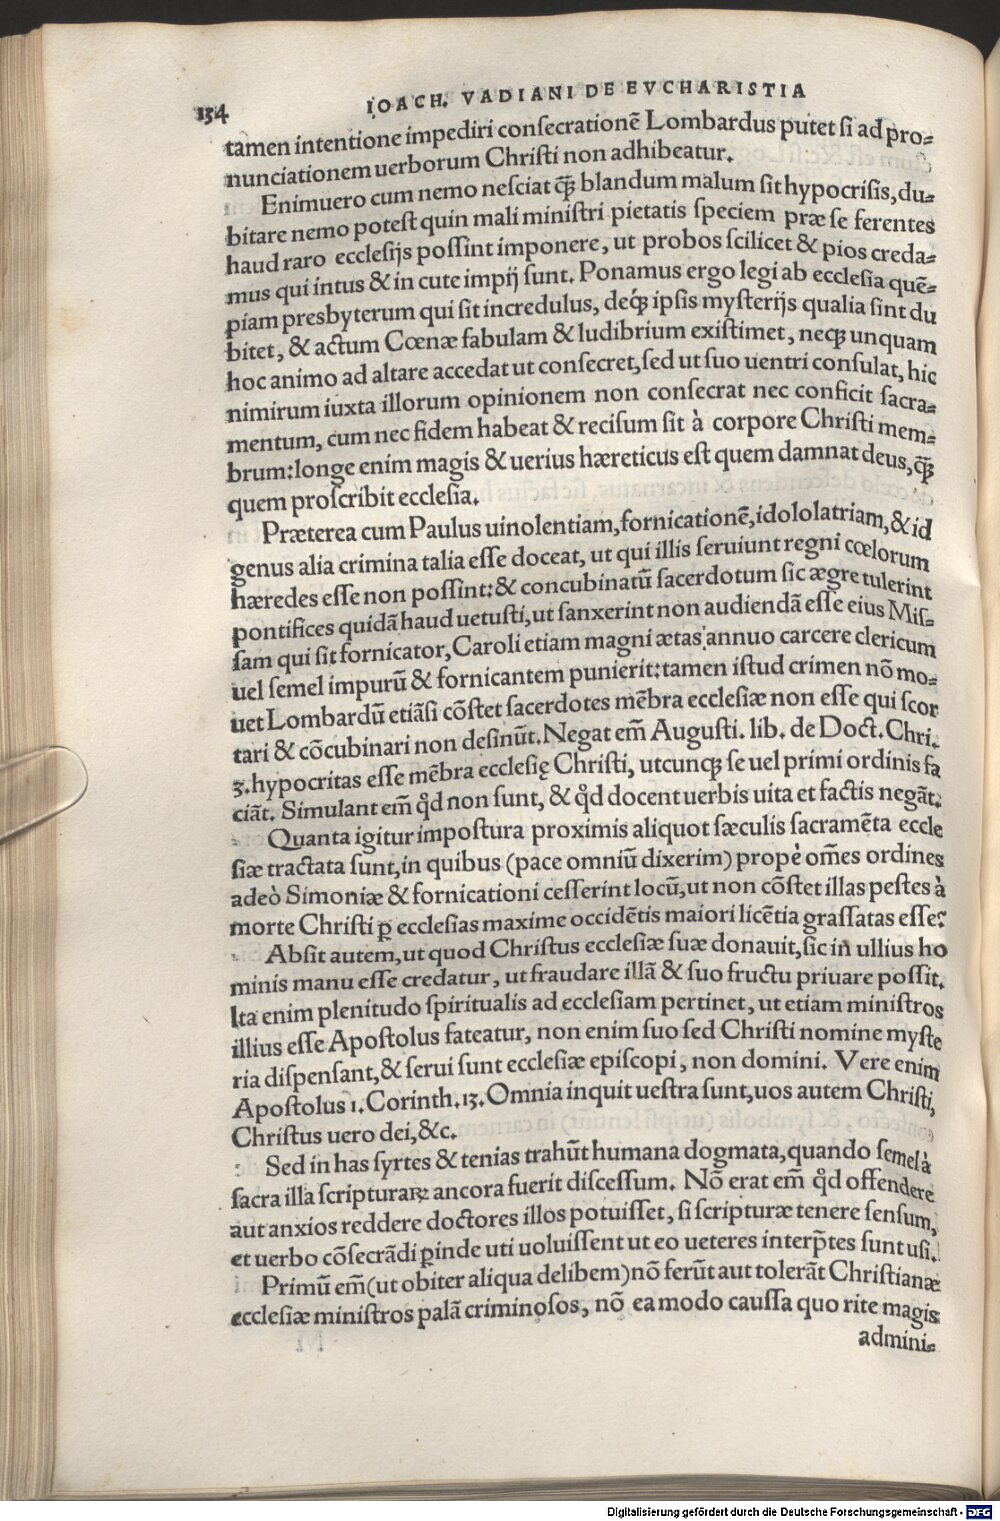 134 IOACH. VADIANI DE EVCHARISTIA
tamen intentione impediri consecrationẽ Lombardus putet si ad pro⸗
nunciationem uerborum Christi non adhibeatur.
Enimuero cum nemo nesciat q̃ꝫ blandum malum sit hypocrisis, du⸗
bitare nemo potest quin mali ministri pietatis speciem præ se ferentes
haud raro ecclesijs possint imponere, ut probos scilicet & pios creda⸗
mus qui intus & in cute impij sunt. Ponamus ergo legi ab ecclesia quẽ⸗
piam presbyterum qui sit incredulus, deq́ꝫ ipsis mysterijs qualia sint du
bitet, & actum Cœnæ fabulam & ludibrium existimet, neqꝫ unquam
hoc animo ad altare accedat ut consecret, sed ut suo uentri consulat, hic
nimirum iuxta illorum opinionem non consecrat nec conficit sacra⸗
mentum, cum nec fidem habeat & recisum sit à corpore Christi mem⸗
brum: longe enim magis & uerius hæreticus est quem damnat deus, q̃ꝫ
quem proscribit ecclesia.
Præterea cum Paulus uinolentiam, fornicationẽ, idololatriam, & id
genus alia crimina talia esse doceat, ut qui illis seruiunt regni cœlorum
hæredes esse non possint: & concubinatũ sacerdotum sic ægre tulerint
pontifices quidã haud uetusti, ut sanxerint non audiendã esse eius Mis⸗
sam qui sit fornicator, Caroli etiam magni ætas annuo carcere clericum
uel semel impurũ & fornicantem punierit: tamen istud crimen nõ mo⸗
uet Lombardũ etiãsi cõstet sacerdotes mẽbra ecclesiæ non esse qui scor
tari & cõcubinari non desinũt. Negat em̃ Augusti. lib. de Doct. Chri.
3. hypocritas esse mẽbra ecclesię Christi, utcunqꝫ se uel primi ordinis fa
ciãt. Simulant em̃ q̃d non sunt, & q̃d docent uerbis uita et factis negãt.
Quanta igitur impostura proximis aliquot sæculis sacramẽta eccle
siæ tractata sunt, in quibus (pace omniũ dixerim) propè om̃es ordines
adeò Simoniæ & fornicationi cesserint locũ, ut non cõstet illas pestes à
morte Christi ꝑ ecclesias maxime occidẽtis maiori licẽtia grassatas esse?
Absit autem, ut quod Christus ecclesiæ suæ donauit, sic in ullius ho
minis manu esse credatur, ut fraudare illã & suo fructu priuare possit.
Ita enim plenitudo spiritualis ad ecclesiam pertinet, ut etiam ministros
illius esse Apostolus fateatur, non enim suo sed Christi nomine myste
ria dispensant, & serui sunt ecclesiæ episcopi, non domini. Vere enim
Apostolus 1. Corinth. 13. Omnia inquit uestra sunt, uos autem Christi,
Christus uero dei, &c.
Sed in has syrtes & tenias trahũt humana dogmata, quando semel à
sacra illa scripturaꝝ ancora fuerit discessum. Nõ erat em̃ q̃d offendere
aut anxios reddere doctores illos potuisset, si scripturæ tenere sensum,
et uerbo cõsecrãdi ꝑinde uti uoluissent ut eo ueteres interp̃tes sunt usi.
Primũ em̃ (ut obiter aliqua delibem) nõ ferũt aut tolerãt Christianæ
ecclesiæ ministros palã criminosos, nõ ea modo caussa quo rite magis
admini⸗
Digitalisierung gefördert durch die Deutsche Forschungsgemeinschaft - DFG